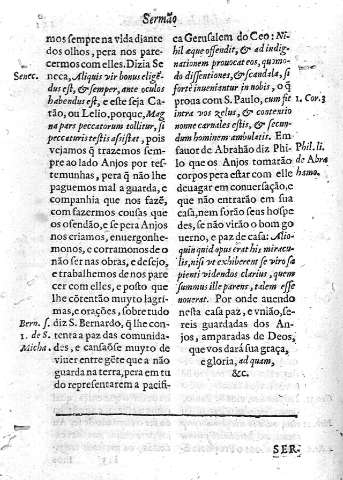 Sermão
mos sempre na vida diante
dos olhos, pera nos pare-
cermos com elles. Dizia Se-
Senec. neca, Aliquis vir bonus eligē-
dus est, & semper, ante oculos
habendus est, e este seja Ca-
tão, ou Lelio, porque, Mag
na pars peccatorum tollitur, si
peccaturis testis assistat, pois
vejamos q̃ trazemos sem-
pre ao lado Anjos por tes-
temunhas, pera q̃ não lhe
paguemos mal a guarda, e
companhia que nos fazẽ,
com fazermos cousas que
os ofendão, e se pera Anjos
nos criamos, envergonhe-
monos, e corramonos de o
não ser nas obras, e desejo,
e trabalhemos de nos pare
cer com elles, e posto que
lhe cõtentão muyto lagri-
mas, e orações, sobre tudo
Bern. s. diz S. Bernardo, q̃ lhe con-
1. de S. tenta a paz das comunida-
Micha. des, e cansaõse muyto de
viuer entre gẽte que a não
guarda na terra, pera em tu
do representarem a pacifi-
ca Gerusalem do Ceo: Ni-
hil æque offendit, & ad indig-
nationem provocat eos, quam-
do dissentiones, & scandala, si
forte inueniantur in nobis, o q̃
1. Cor. 3 proua com S. Paulo, cum sit
intra vos zelus, & contentio
nonne carnales estis, & secun-
dum hominem ambulatis. Em
fauor de Abrahão diz Phi-
Phil. li. de Abra hamo. lo que os Anjos tomarão
corpos pera estar com elle
deuagar em conuersação, e
que não entrarão em sua
casa, nem forão seus hospe
des, se não virão o bom go
uerno, e paz de casa: Alio-
quin quid opus erat his miracu-
lis, nisi ve exhiberent se viro sa
pienti videndos clarius, quem
summus ille parens, talem esse
nouerat. Por onde auendo
nesta casa paz, e vnião, se-
reis guardadas dos An-
jos, amparadas de Deos,
que vos dará sua graça,
e gloria, ad quam,
&c.
SER-